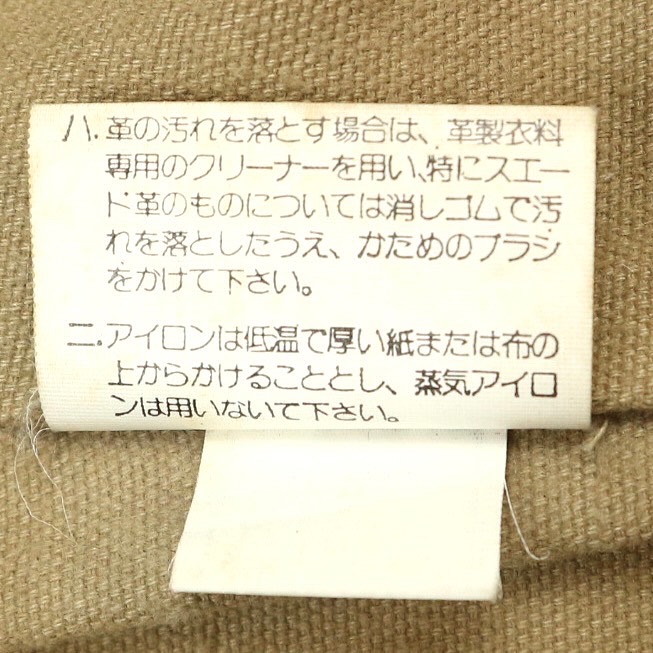 ハ.革の汚れを落とす場合は、革製衣料
専用のクリーナーを用い、特にスエー
ド革のものについては消しゴムで汚
れを落としたうえ、かためのブラシ
をかけて下さい。
ニ.アイロンは低温で厚い紙または布の
上からかけることとし、蒸気アイロ
ンは用いないで下さい。